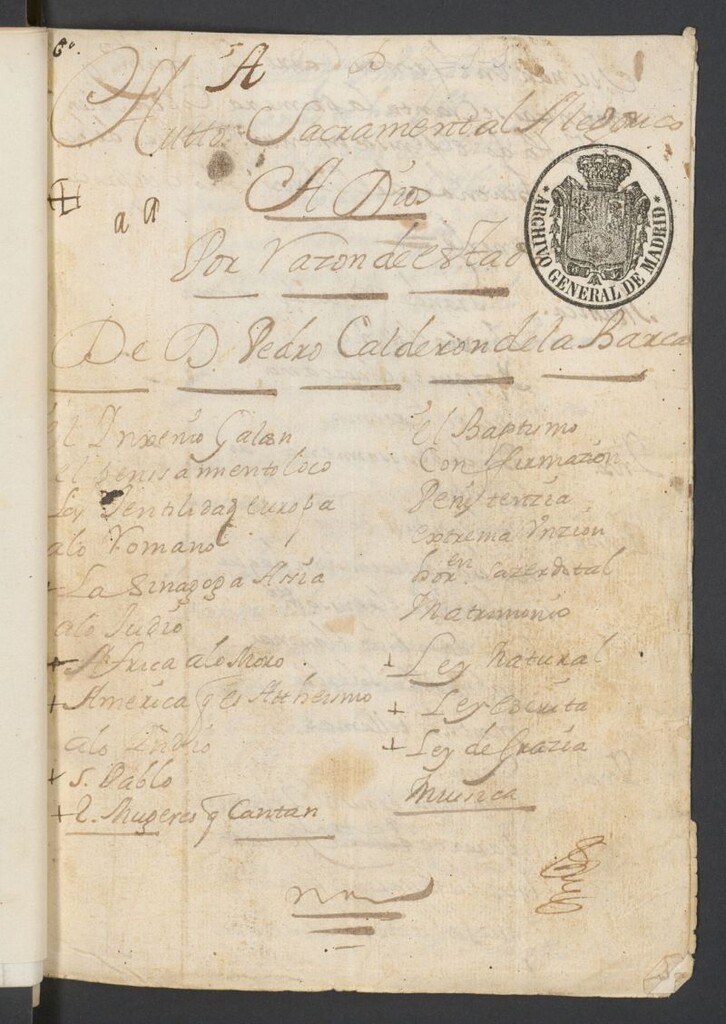 A
Autto Sacramental Alegorico
A Dios
a a
Por Razon de estado
ARCHIVO GENERAL DE MADRID
De D. Pedro Calderon de la Barca
el Ynxenio Galan
el pensamiento loco
Ley Jentilidad europa
alo Romano
+ La Sinagoga Assia
alo Judio
+ Africa alo Moro
+ America q es Attheismo
alo Yndio
+ S. Pablo
+ 2. Mugeres q Cantan
el Baptismo
Confirmazion
Penitenzia
extrema Vnzion
horen Sazerdotal
Matrimonio
+ Ley Natural
+ Ley escrita
+ Ley de Grazia
Musica